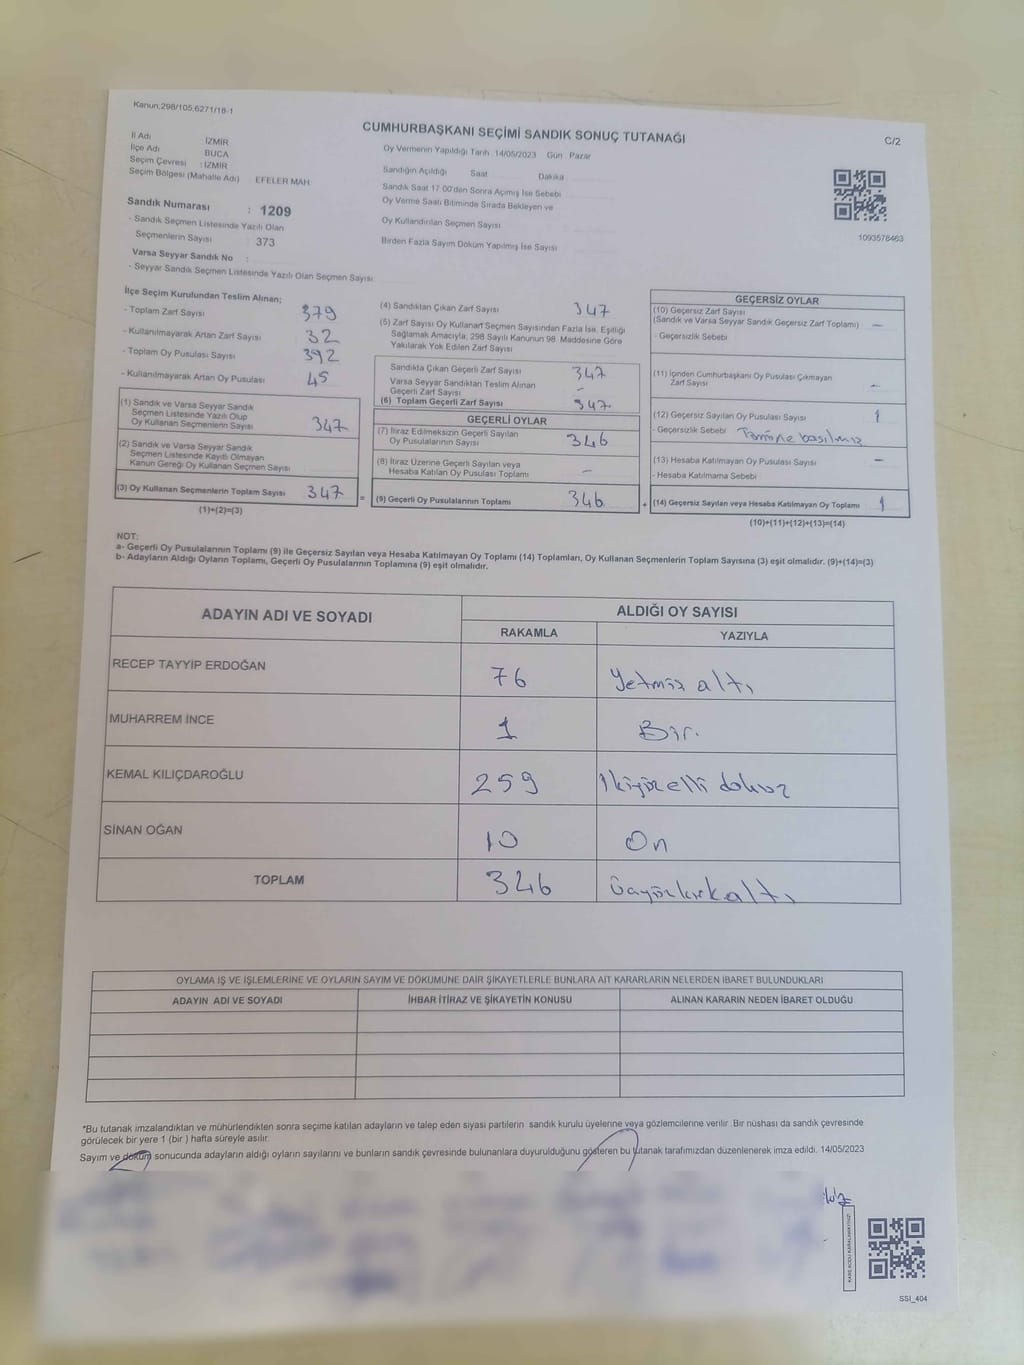 Kanun.298/105,6271/18-1
CUMHURBAŞKANI SEÇİMİ SANDIK SONUÇ TUTANAĞI
C/2
İl Adı İZMİR
İlçe Adı BUCA
Seçim Çevresi : İZMİR
Seçim Bölgesi (Mahalle Adı) : EFELER MAH.
Oy Vermenin Yapıldığı Tarih 14/05/2023 Gün Pazar
Sandığın Açıldığı Saat Dakika
Sandık Saat 17.00'den Sonra Açımış İse Sebebi
Oy Verme Saati Bitiminde Sırada Bekleyen ve
Oy Kullandırılan Seçmen Sayısı
Birden Fazla Sayım Döküm Yapılmış İse Sayısı
1093578463
Sandık Numarası : 1209
- Sandık Seçmen Listesinde Yazılı Olan
Seçmenlerin Sayısı 373
Varsa Seyyar Sandık No :
- Seyyar Sandık Seçmen Listesinde Yazılı Olan Seçmen Sayısı:
İlçe Seçim Kurulundan Teslim Alınan;
- Toplam Zarf Sayısı 379
- Kullanılmayarak Artan Zarf Sayısı 32
- Toplam Oy Pusulası Sayısı 392
- Kullanılmayarak Artan Oy Pusulası 45
(1) Sandık ve Varsa Seyyar Sandık
Seçmen Listesinde Yazılı Olup
Oy Kullanan Seçmenlerin Sayısı 347
(2) Sandık ve Varsa Seyyar Sandık
Seçmen Listesinde Kayıtlı Olmayan
Kanun Gereği Oy Kullanan Seçmen Sayısı
(3) Oy Kullanan Seçmenlerin Toplam Sayısı 347 =
(1)+(2)=(3)
(4) Sandıktan Çıkan Zarf Sayısı 347
(5) Zarf Sayısı Oy Kullanan Seçmen Sayısından Fazla İse, Eşitliği
Sağlamak Amacıyla, 298 Sayılı Kanunun 98. Maddesine Göre
Yakılarak Yok Edilen Zarf Sayısı
Sandıkta Çıkan Geçerli Zarf Sayısı 347
Varsa Seyyar Sandıktan Teslim Alınan
Geçerli Zarf Sayısı -
(6) Toplam Geçerli Zarf Sayısı 347
GEÇERLİ OYLAR
(7) İtiraz Edilmeksizin Geçerli Sayılan
Oy Pusulalarının Sayısı 346
(8) İtiraz Üzerine Geçerli Sayılan veya
Hesaba Katılan Oy Pusulası Toplamı -
(9) Geçerli Oy Pusulalarının Toplamı 346 +
GEÇERSİZ OYLAR
(10) Geçersiz Zarf Sayısı
(Sandık ve Varsa Seyyar Sandık Geçersiz Zarf Toplamı) -
- Geçersizlik Sebebi
(11) İçinden Cumhurbaşkanı Oy Pusulası Çıkmayan
Zarf Sayısı -
(12) Geçersiz Sayılan Oy Pusulası Sayısı 1
- Geçersizlik Sebebi basılmış
(13) Hesaba Katılmayan Oy Pusulası Sayısı -
- Hesaba Katılmama Sebebi
(14) Geçersiz Sayılan veya Hesaba Katılmayan Oy Toplamı 1
(10)+(11)+(12)+(13)=(14)
NOT:
a- Geçerli Oy Pusulalarının Toplamı (9) ile Geçersiz Sayılan veya Hesaba Katılmayan Oy Toplamı (14) Toplamları, Oy Kullanan Seçmenlerin Toplam Sayısına (3) eşit olmalıdır. (9)+(14)=(3)
b- Adayların Aldığı Oyların Toplamı, Geçerli Oy Pusulalarının Toplamına (9) eşit olmalıdır.
ADAYIN ADI VE SOYADI ALDIĞI OY SAYISI
RAKAMLA YAZIYLA
RECEP TAYYİP ERDOĞAN 76 Yetmiş altı
MUHARREM İNCE 1 Bir.
KEMAL KILIÇDAROĞLU 259 İkiyüzelli dokuz
SİNAN OĞAN 10 On
TOPLAM 346 Üçyüzkırkaltı
OYLAMA İŞ VE İŞLEMLERİNE VE OYLARIN SAYIM VE DÖKÜMÜNE DAİR ŞİKAYETLERLE BUNLARA AİT KARARLARIN NELERDEN İBARET BULUNDUKLARI
ADAYIN ADI VE SOYADI İHBAR İTİRAZ VE ŞİKAYETİN KONUSU ALINAN KARARIN NEDEN İBARET OLDUĞU
*Bu tutanak imzalandıktan ve mühürlendikten sonra seçime katılan adayların ve talep eden siyasi partilerin sandık kurulu üyelerine veya gözlemcilerine verilir. Bir nüshası da sandık çevresinde
görülecek bir yere 1 (bir ) hafta süreyle asılır.
Sayım ve döküm sonucunda adayların aldığı oyların sayılarını ve bunların sandık çevresinde bulunanlara duyurulduğunu gösteren bu tutanak tarafımızdan düzenlenerek imza edildi. 14/05/2023
KARE KODU KARALAMAYINIZ!
SSİ_404